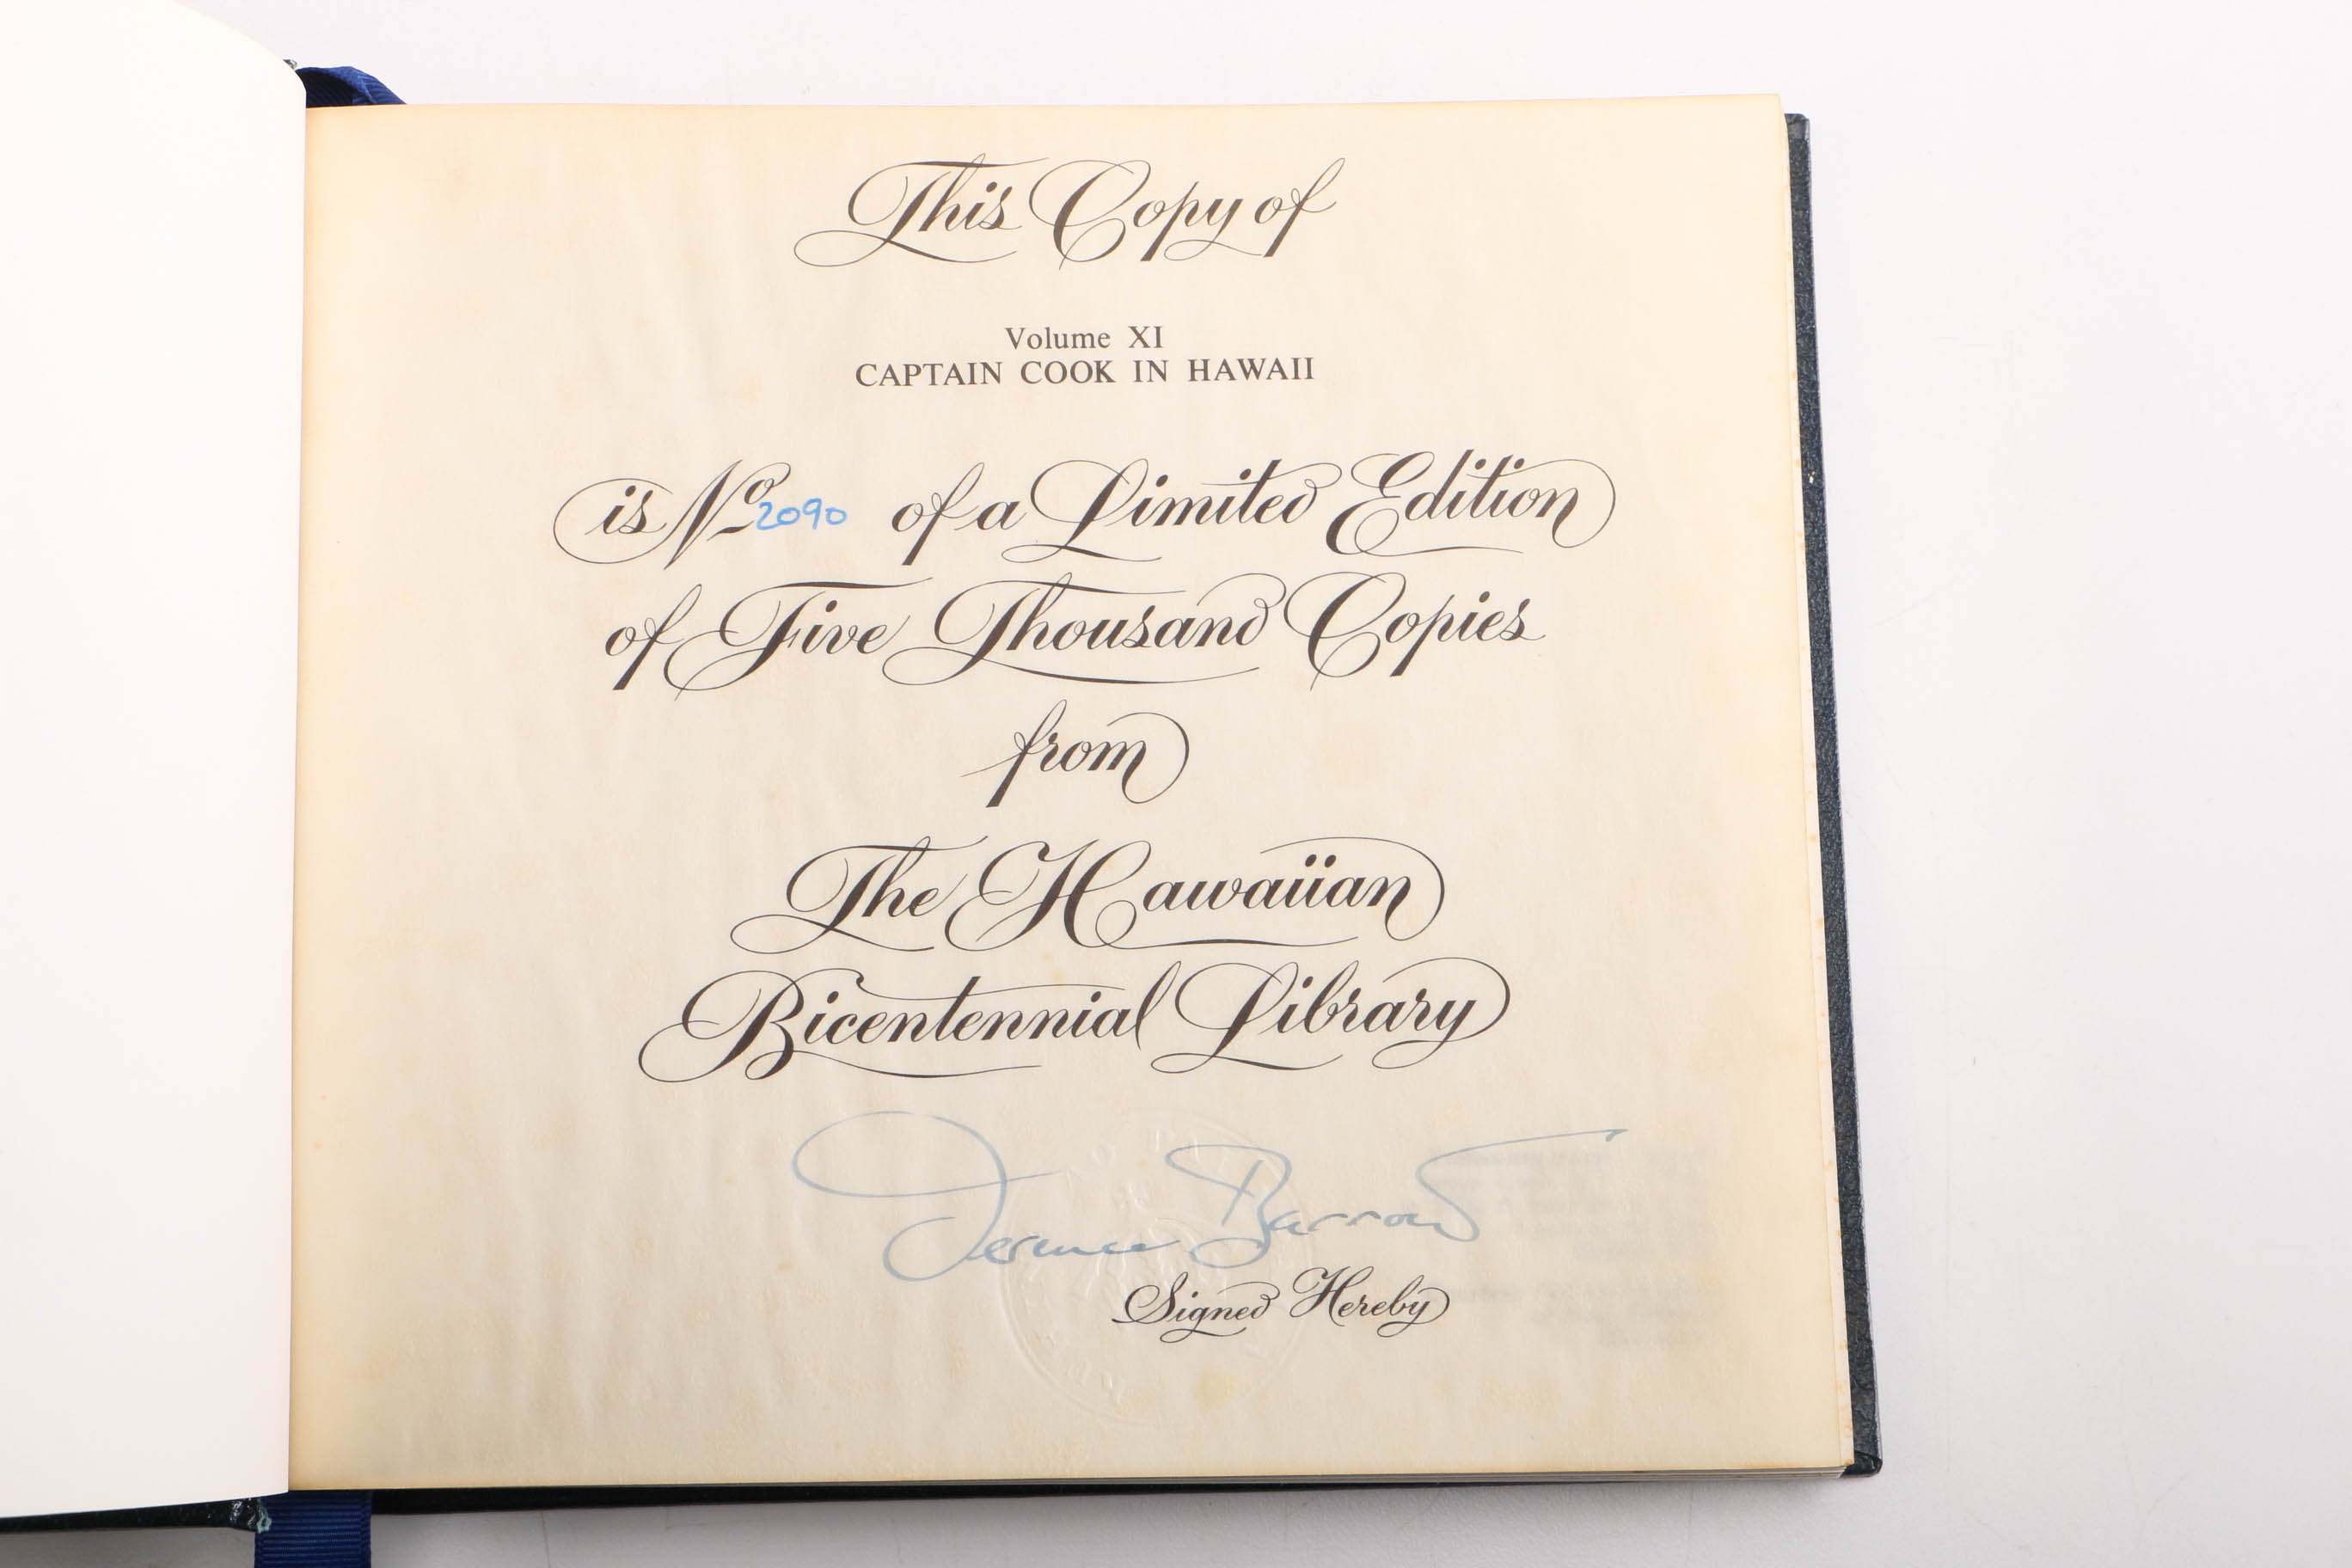 This Copy of
Volume XI
CAPTAIN COOK IN HAWAII
is No 2090 of a Limited Edition
of Five Thousand Copies
from
The Hawaiian
Bicentennial Library
Terence Barrow
Signed Hereby